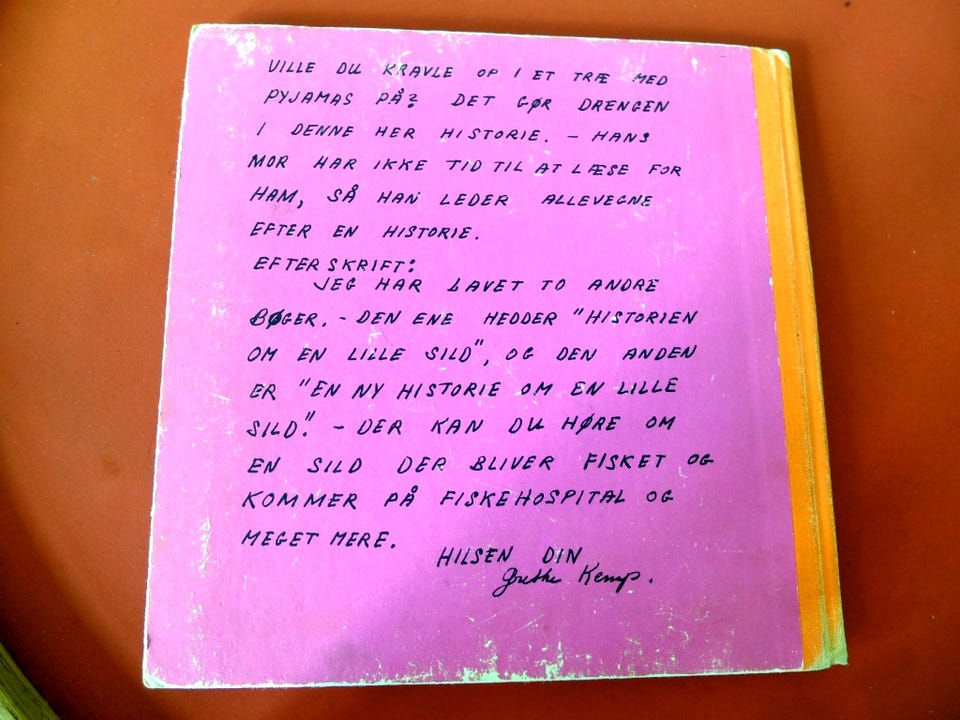 VILLE DU KRAVLE OP I ET TRÆ MED
PYJAMAS PÅ? DET GØR DRENGEN
I DENNE HER HISTORIE. - HANS
MOR HAR IKKE TID TIL AT LÆSE FOR
HAM, SÅ HAN LEDER ALLEVEGNE
EFTER EN HISTORIE.
EFTERSKRIFT:
JEG HAR LAVET TO ANDRE
BØGER. - DEN ENE HEDDER "HISTORIEN
OM EN LILLE SILD", OG DEN ANDEN
ER "EN NY HISTORIE OM EN LILLE
SILD." - DER KAN DU HØRE OM
EN SILD DER BLIVER FISKET OG
KOMMER PÅ FISKEHOSPITAL OG
MEGET MERE.
HILSEN DIN
Grethe Kemp.